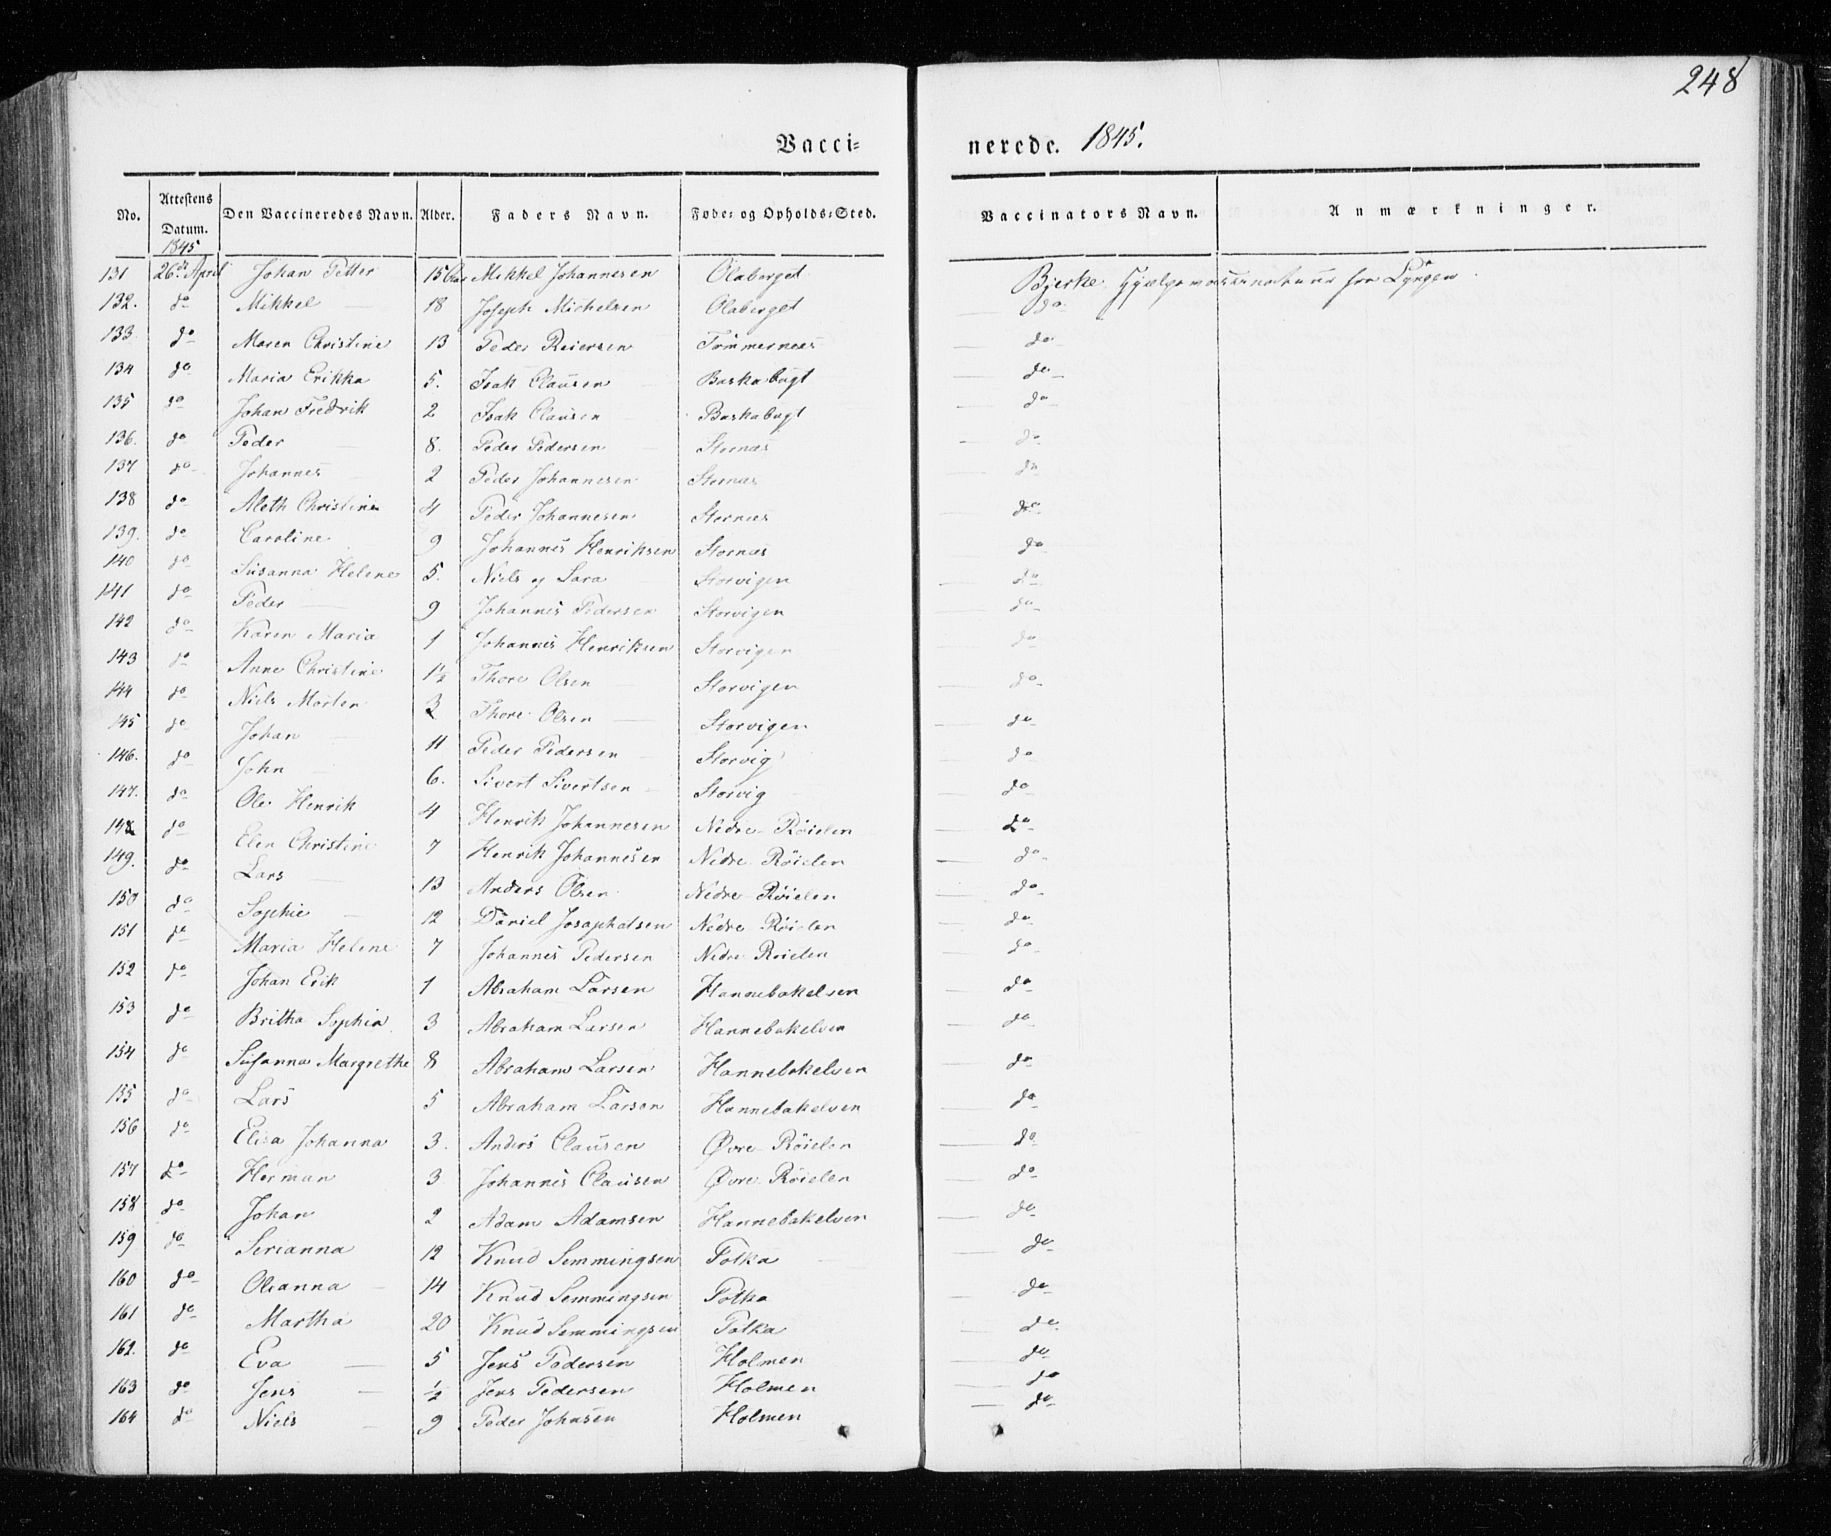 248
Vacci- nerede. 1845.
No. Attestens Datum. Den Vaccineredes Navn. Alder. Faders Navn. Føde- og Opholds-Sted. Vaccinators Navn. Anmærkninger.
1845
131 26de April Johan Petter 15 Mikkel Johannesen Olaberget Bjerke, Hjælpevaccinateur fra Lyngen.
132. do Mikkel 18 Joseph Michelsen Olaberget do
133 do Maren Christine 13 Peder Reiersen Tømmernæs do
134 do Maria Erikka 5. Isak Clausen Baskabugt do
135 do Johan Fredrik 2 Isak Clausen Baskabugt do
136. do Peder 8. Peder Pedersen Stornæs do
137 do Johannes 2 Peder Johannesen Stornæs do
138 do Aleth Christine 4 Peder Johannesen Stornæs do
139. do Caroline 9 Johannes Henriksen Stornæs do
140 do Susanna Helene 5. Niels og Sara Storvigen do
141 do Peder 9 Johannes Pedersen Storvigen do
142 do Karen Maria 1 Johannes Henriksen Storvigen do
143 do Anne Christine 1½ Thore Olsen Storvigen do
144 do Niels Morten 3 Thore Olsen Storvigen do
145 do Johan 11 Peder Pedersen Storvig do
146. do John 6. Sivert Sivertsen Storvig do
147. do Ole Henrik 4 Henrik Johannesen Nedre Röielen do
148 do Elen Christine 7 Henrik Johannesen Nedre Röielen do
149. do Lars 13 Anders Olsen Nedre Röielen do
150 do Sophie 12 Daniel Josaphatsen Nedre Röielen do
151 do Maria Helene 7 Johannes Pedersen Nedre Röielen do
152 do Johan Erik 1 Abraham Larsen Hannebakelven do
153 do Britha Sophia 3 Abraham Larsen Hannebakelven do
154 do Susanna Margrethe 8 Abraham Larsen Hannebakelven do
155 do Lars 5 Abraham Larsen Hannebakelven do
156 do Elisa Johanna 3. Anders Clausen Øvre Röielen do
157 do Herman 3 Johannes Clausen Øvre Röielen do
158 do Johan 2 Adam Adamsen Hannebakelven do
159 do Serianna 12 Knud Semmingsen Potka do
160 do Oleanna 14 Knud Semmingsen Potka do
161 do Martha 20 Knud Semmingsen Potka do
162. do Eva 5 Jens Pedersen Holmen do
163 do Jens ½ Jens Pedersen Holmen do
164 do Niels 9 Peder Johnsen Holmen do